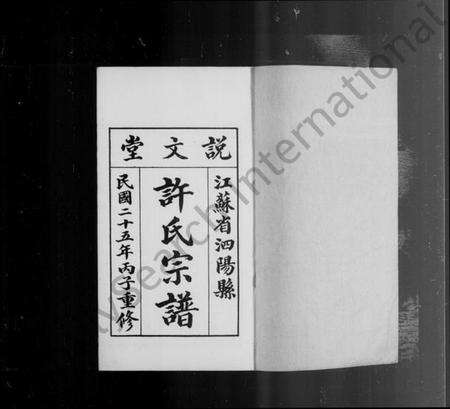 説文堂
江蘇省泗陽縣
許氏宗譜
民國二十五年丙子重修
ysearch International